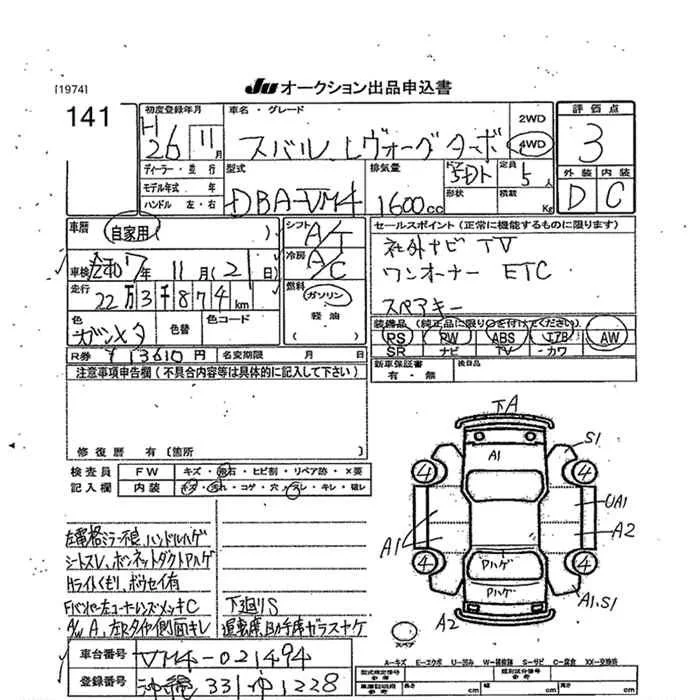 [1974]
JU オークション出品申込書
141
初度登録年月
車名・グレード
H 26 11月
スバル レヴォーグ ターボ
2WD
4WD
評価点
3
ディーラー・並行
モデル年式 年
ハンドル 左・右
型式
DBA-VM4
排気量
1600cc
ドア
5
形状
定員
5人
積載
Kg
外装 内装
D C
車歴
自家用 ( )
シフト
A/T
セールスポイント(正常に機能するものに限ります)
社外ナビ TV
ワンオーナー ETC
スペアキー
車検 令和7年 11月(2日)
冷房
A/C
走行
22万3千874km
燃料
ガソリン
軽油
色
ガンメタ
色替
色コード
装備品(純正品に限り○を付けてください)
PS RW ABS エアB AW
SR ナビ TV カワ
R券 ¥13610円 名変期限 月 日
新車保証書
有・無
後日品
注意事項申告欄(不具合内容等は具体的に記入して下さい)
修復歴 有〔箇所 〕
検査員
記入欄
FW キズ・飛石・ヒビ割・リペア跡・×要
内装 キズ・汚れ・コゲ・穴・スレ・キレ・破レ
左電格ミラー不良、ハンドルハゲ
シートスレ、ボンネットダクトPハゲ
Hライトくもり、ボウセイ有
Fバンパー左コーナーレンズメッキC
AW A、左Rタイヤ側面キレ
下廻りS
運転席、助手席ガラスナケ
下A
A1
S1
4
4
UA1
A1
A2
4
4
Pハゲ
Pハゲ
A1.S1
A2
スペア
車台番号 VM4-021494
登録番号 沖縄 331 ゆ 1228
A-キズ E-エクボ U-凹み W-補修跡 S-サビ C-腐食 XX-交換済
型式指定番号
類別区分番号
長さ cm 幅 cm 高さ cm